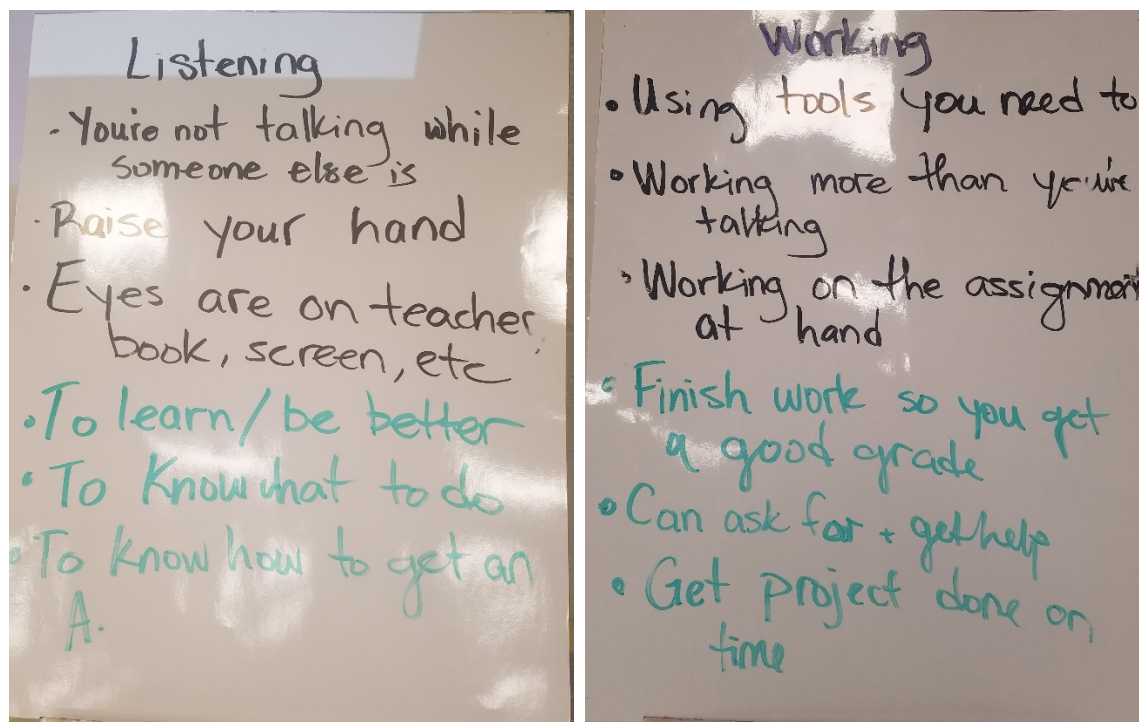 Listening
• You're not talking while
someone else is
• Raise your hand
• Eyes are on teacher,
book, screen, etc
• To learn/be better
• To Know what to do
• To know how to get an
A.
Working
• Using tools you need to
• Working more than you're
talking
• Working on the assignment
at hand
• Finish work so you get
a good grade
• Can ask for + get help
• Get project done on
time